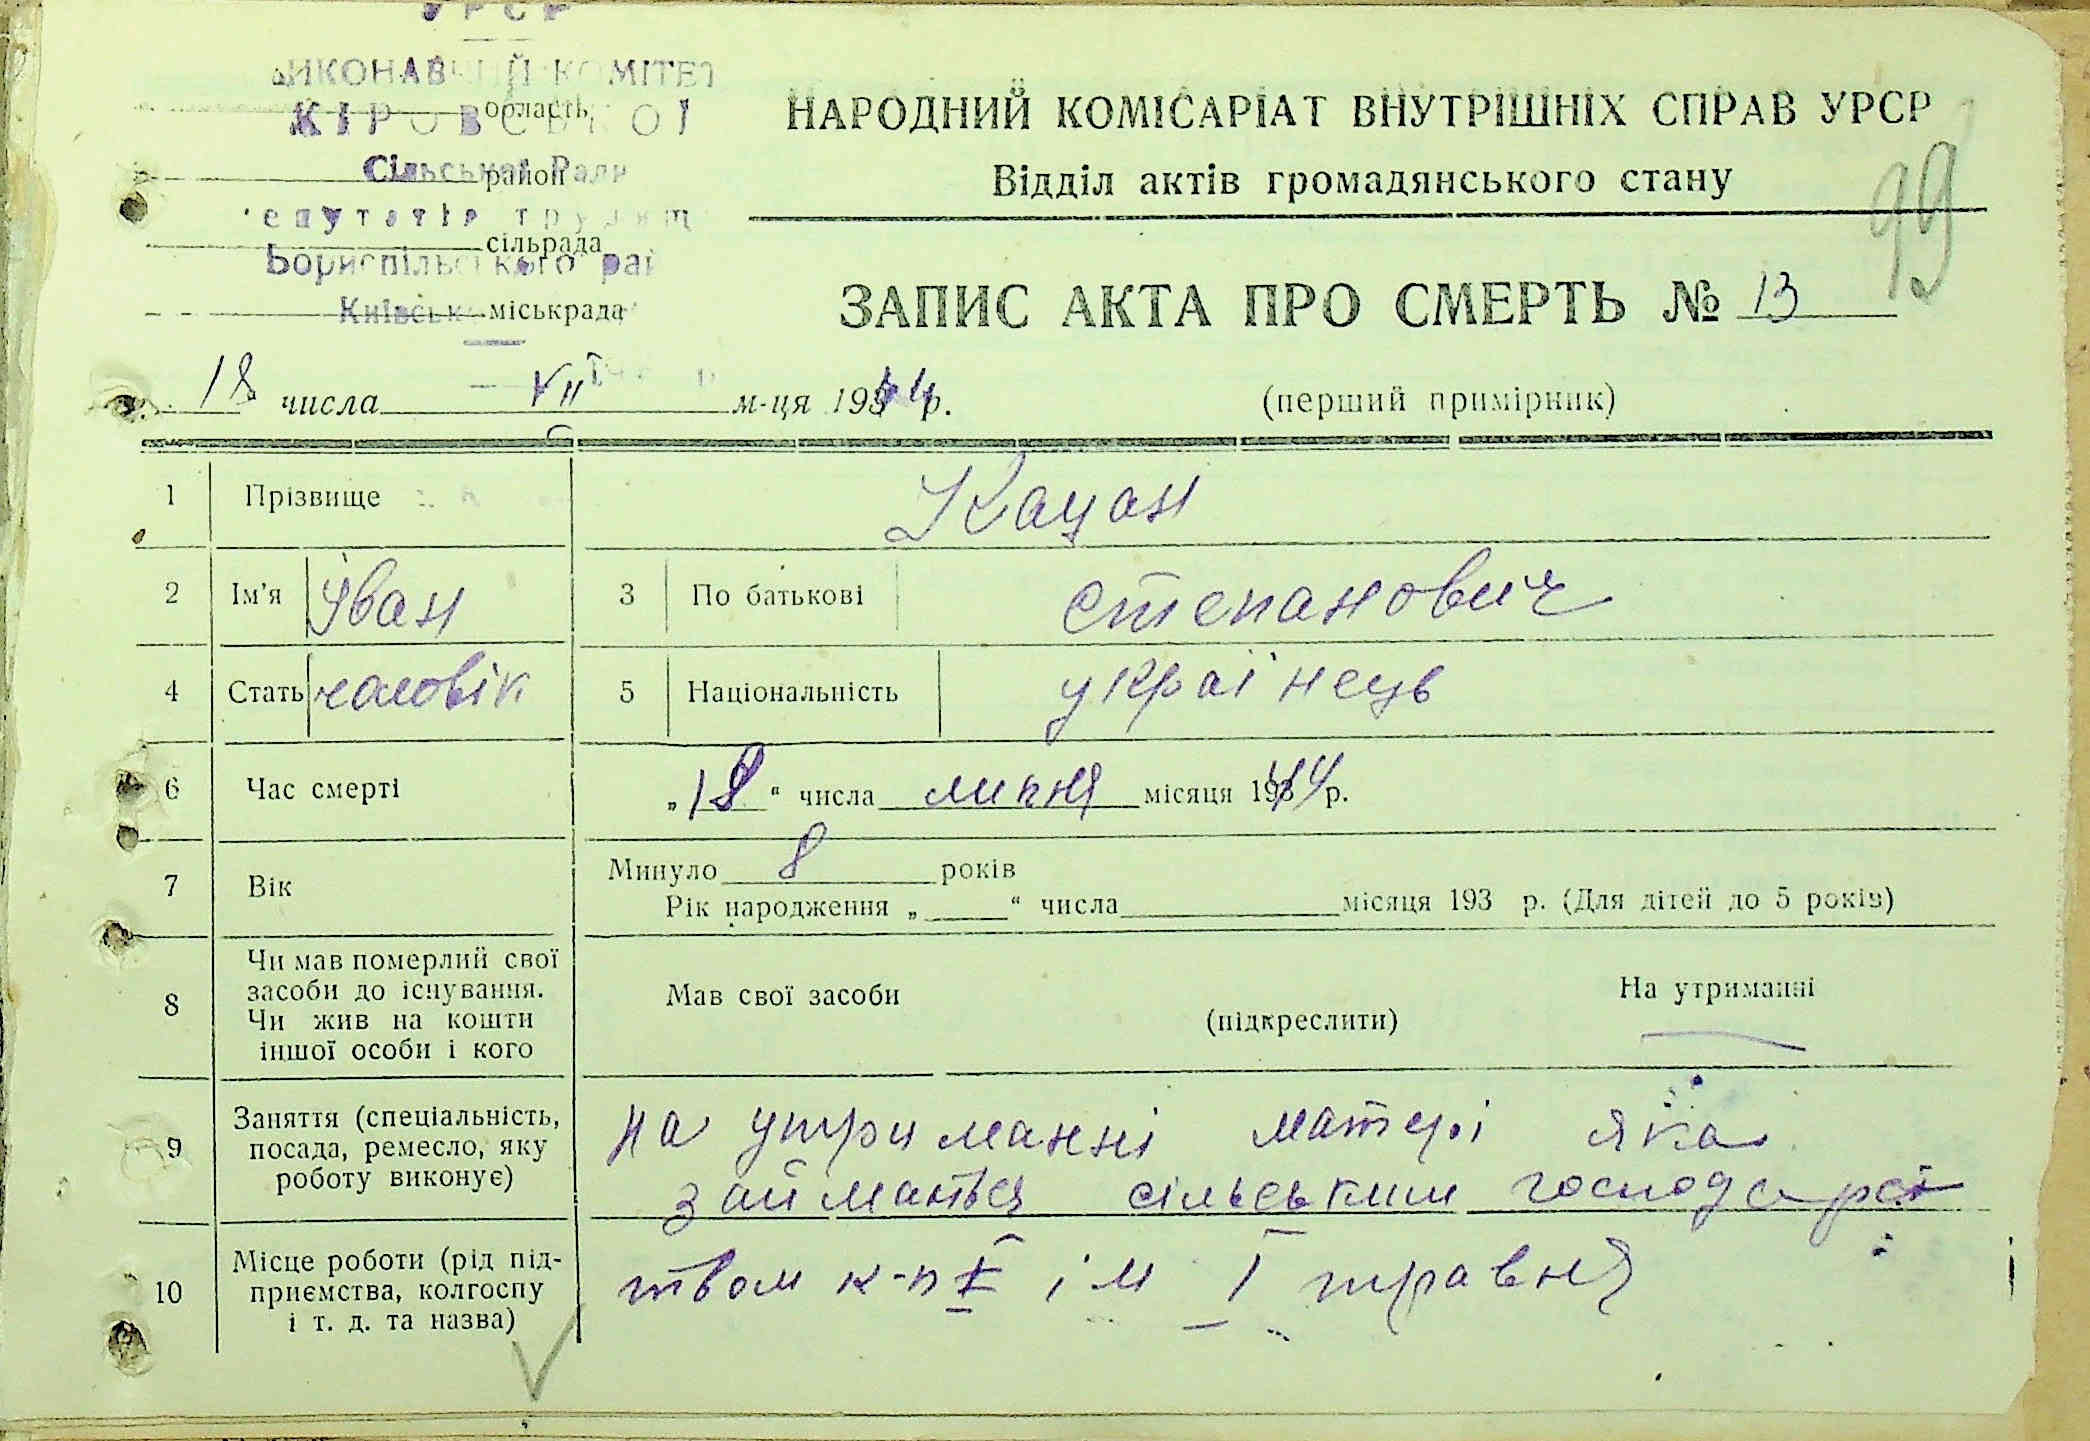 УРСР
ВИКОНАВЧИЙ КОМІТЕТ
КІРОВСЬКОЇ
область
Сільської Ради
район
депутатів трудящ
сільрада
Бориспільського рай
Київськ
міськрада
НАРОДНИЙ КОМІСАРІАТ ВНУТРІШНІХ СПРАВ УРСР
Відділ актів громадянського стану
99
ЗАПИС АКТА ПРО СМЕРТЬ № 13
18 числа VII м-ця 1944 р.
(перший примірник)
1 Прізвище Кацан
2 Ім'я Іван 3 По батькові Степанович
4 Стать чоловік 5 Національність українець
6 Час смерті „18“ числа липня місяця 1944 р.
7 Вік Минуло 8 років
Рік народження „ “ числа місяця 193 р. (Для дітей до 5 років)
8 Чи мав померлий свої
засоби до існування.
Чи жив на кошти
іншої особи і кого
Мав свої засоби (підкреслити) На утриманні
9 Заняття (спеціальність,
посада, ремесло, яку
роботу виконує)
на утриманні матері яка
займається сільським господарс
10 Місце роботи (рід під-
приємства, колгоспу
і т. д. та назва)
твом к-п ім 1 травня